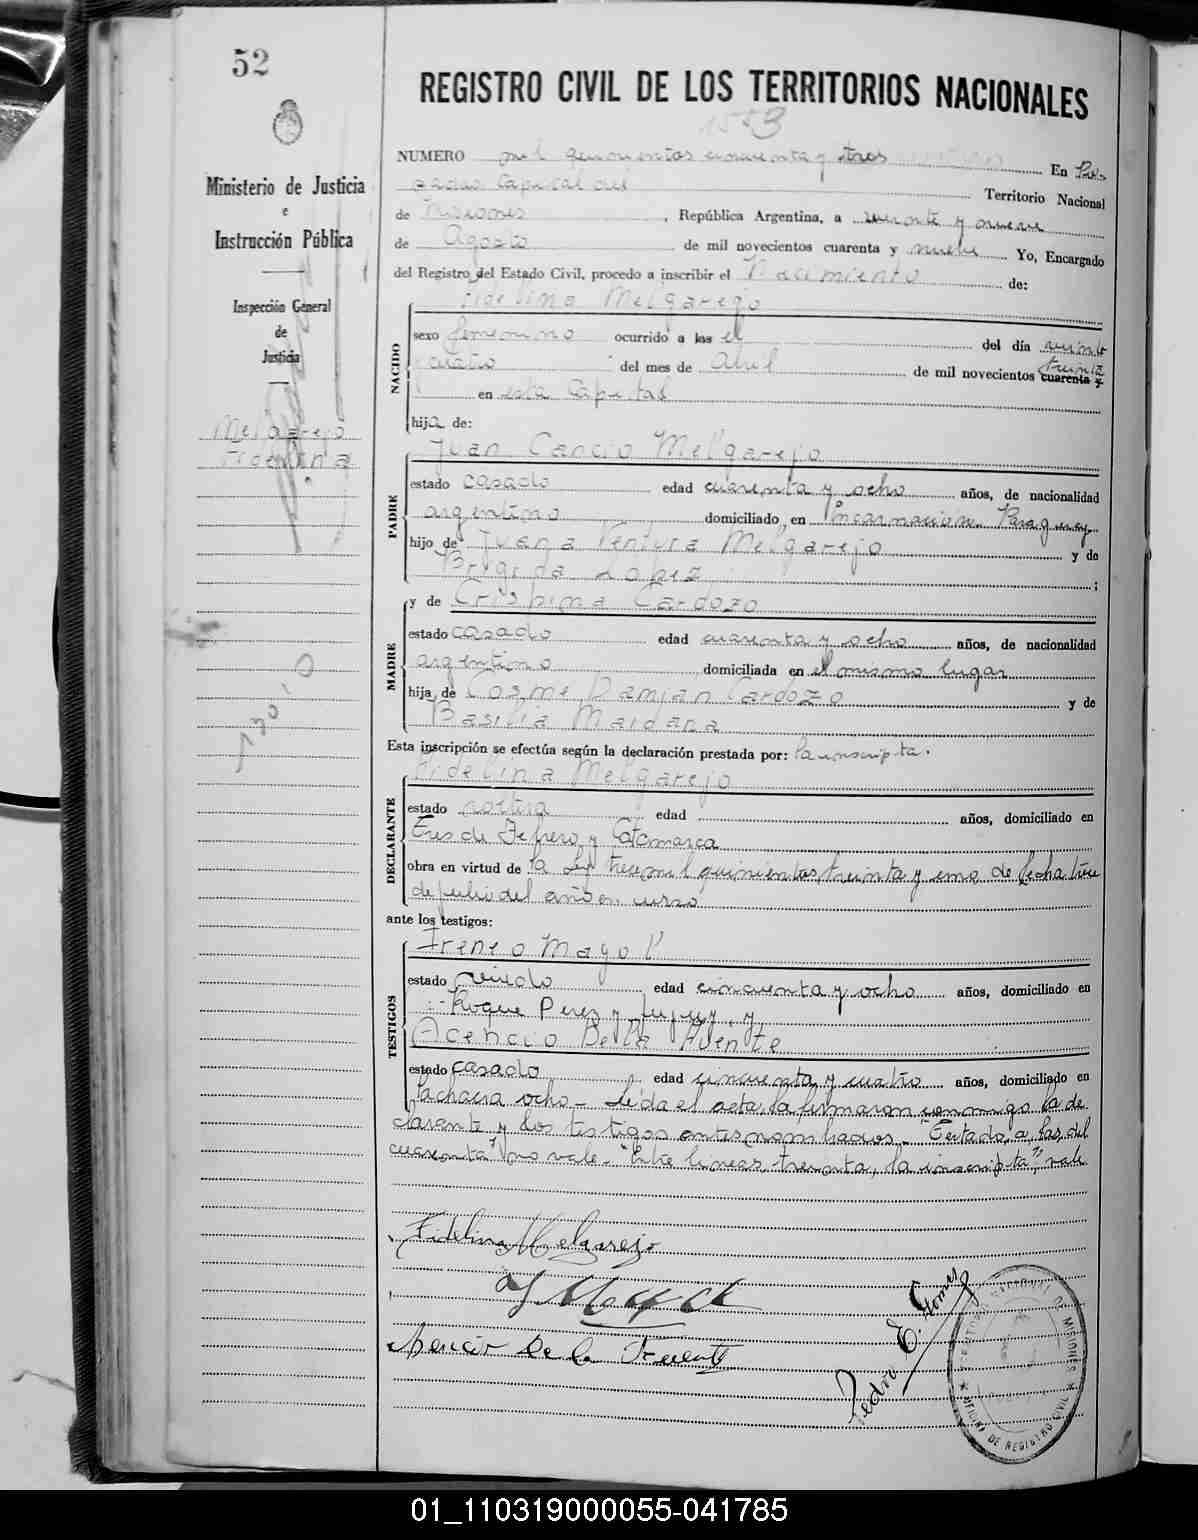 52
REGISTRO CIVIL DE LOS TERRITORIOS NACIONALES
1553
Ministerio de Justicia
e
Instrucción Pública
Inspección General
de
Justicia
Melgarejo
Fidelina
NUMERO mil quinientos cincuenta y tres En Po-
sadas Capital del Territorio Nacional
de Misiones, República Argentina, a veinte y nueve
de Agosto de mil novecientos cuarenta y nueve Yo, Encargado
del Registro del Estado Civil, procedo a inscribir el Nacimiento de:
Fidelina Melgarejo
NACIDO
sexo femenino ocurrido a las el del día veinte
cuatro del mes de Abril de mil novecientos treinta cuarenta y
en esta Capital
hija de:
Juan Cancio Melgarejo
PADRE
estado casado edad cuarenta y ocho años, de nacionalidad
argentino domiciliado en Encarnación Paraguay
hijo de Juana Ventura Melgarejo y de
Brigida Lopez ;
y de Crispina Cardozo
MADRE
estado casado edad cuarenta y ocho años, de nacionalidad
argentino domiciliada en el mismo lugar
hija de Cosme Damian Cardozo y de
Basilia Maidana
Esta inscripción se efectúa según la declaración prestada por: la inscripta.
Fidelina Melgarejo
DECLARANTE
estado soltera edad años, domiciliado en
Tres de Febrero y Catamarca
obra en virtud de la Ley trece mil quinientos treinta y uno de fecha
de julio del año en curso
ante los testigos:
Ireneo Mayol
TESTIGOS
estado viudo edad cincuenta y ocho años, domiciliado en
Roque Perez y Jujuy. y
Acencio De la Fuente
estado casado edad cincuenta y cuatro años, domiciliado en
la chacra ocho - Leida el acta, la firmaron conmigo la de
clarante y los testigos antes nombrados - "Testado, a las, del
cuarenta" no vale - "Entre lineas - treinta, la inscripta", vale
Fidelina Melgarejo
Acencio De la Fuente
Pedro E. Gomez
OFICINA DE REGISTRO CIVIL
01_110319000055-041785